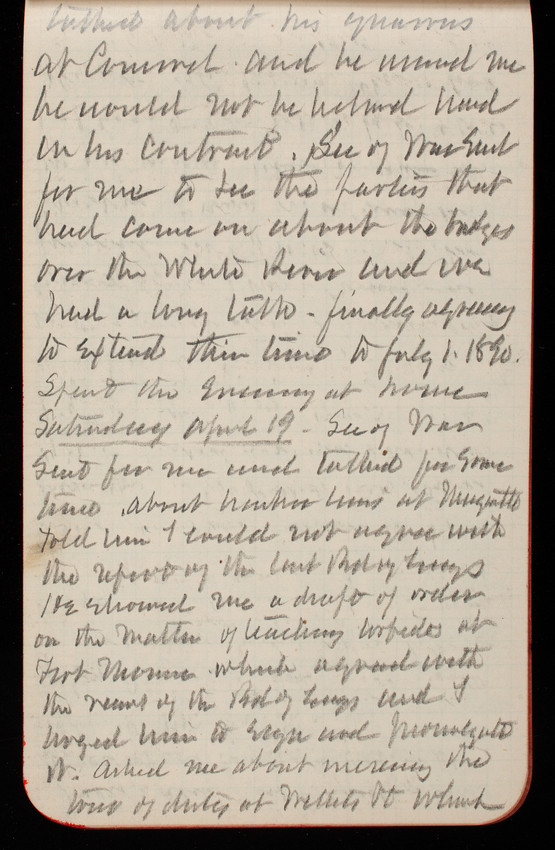 talked about his quarries
at Concord and he assured me
he would not be behind hand
in his contract. Sec of War Sent
for me to see the parties that
had come on about the bridges
over the White River and we
had a long talk - finally agreeing
to extend their time to July 1. 1890.
Spent the Evening at home
Saturday April 19 - Sec of War
Sent for me and talked for some
time about harbor lines at
Told him I could not agree with
the report of the last Bd of Engs
He showed me a draft of order
on the matter of teaching torpedoes at
Fort Monroe which agreed with
the views of the Bd of Engs and I
urged him to sign and promulgate
it. Asked me about the
tour of duty at Willets Pt which